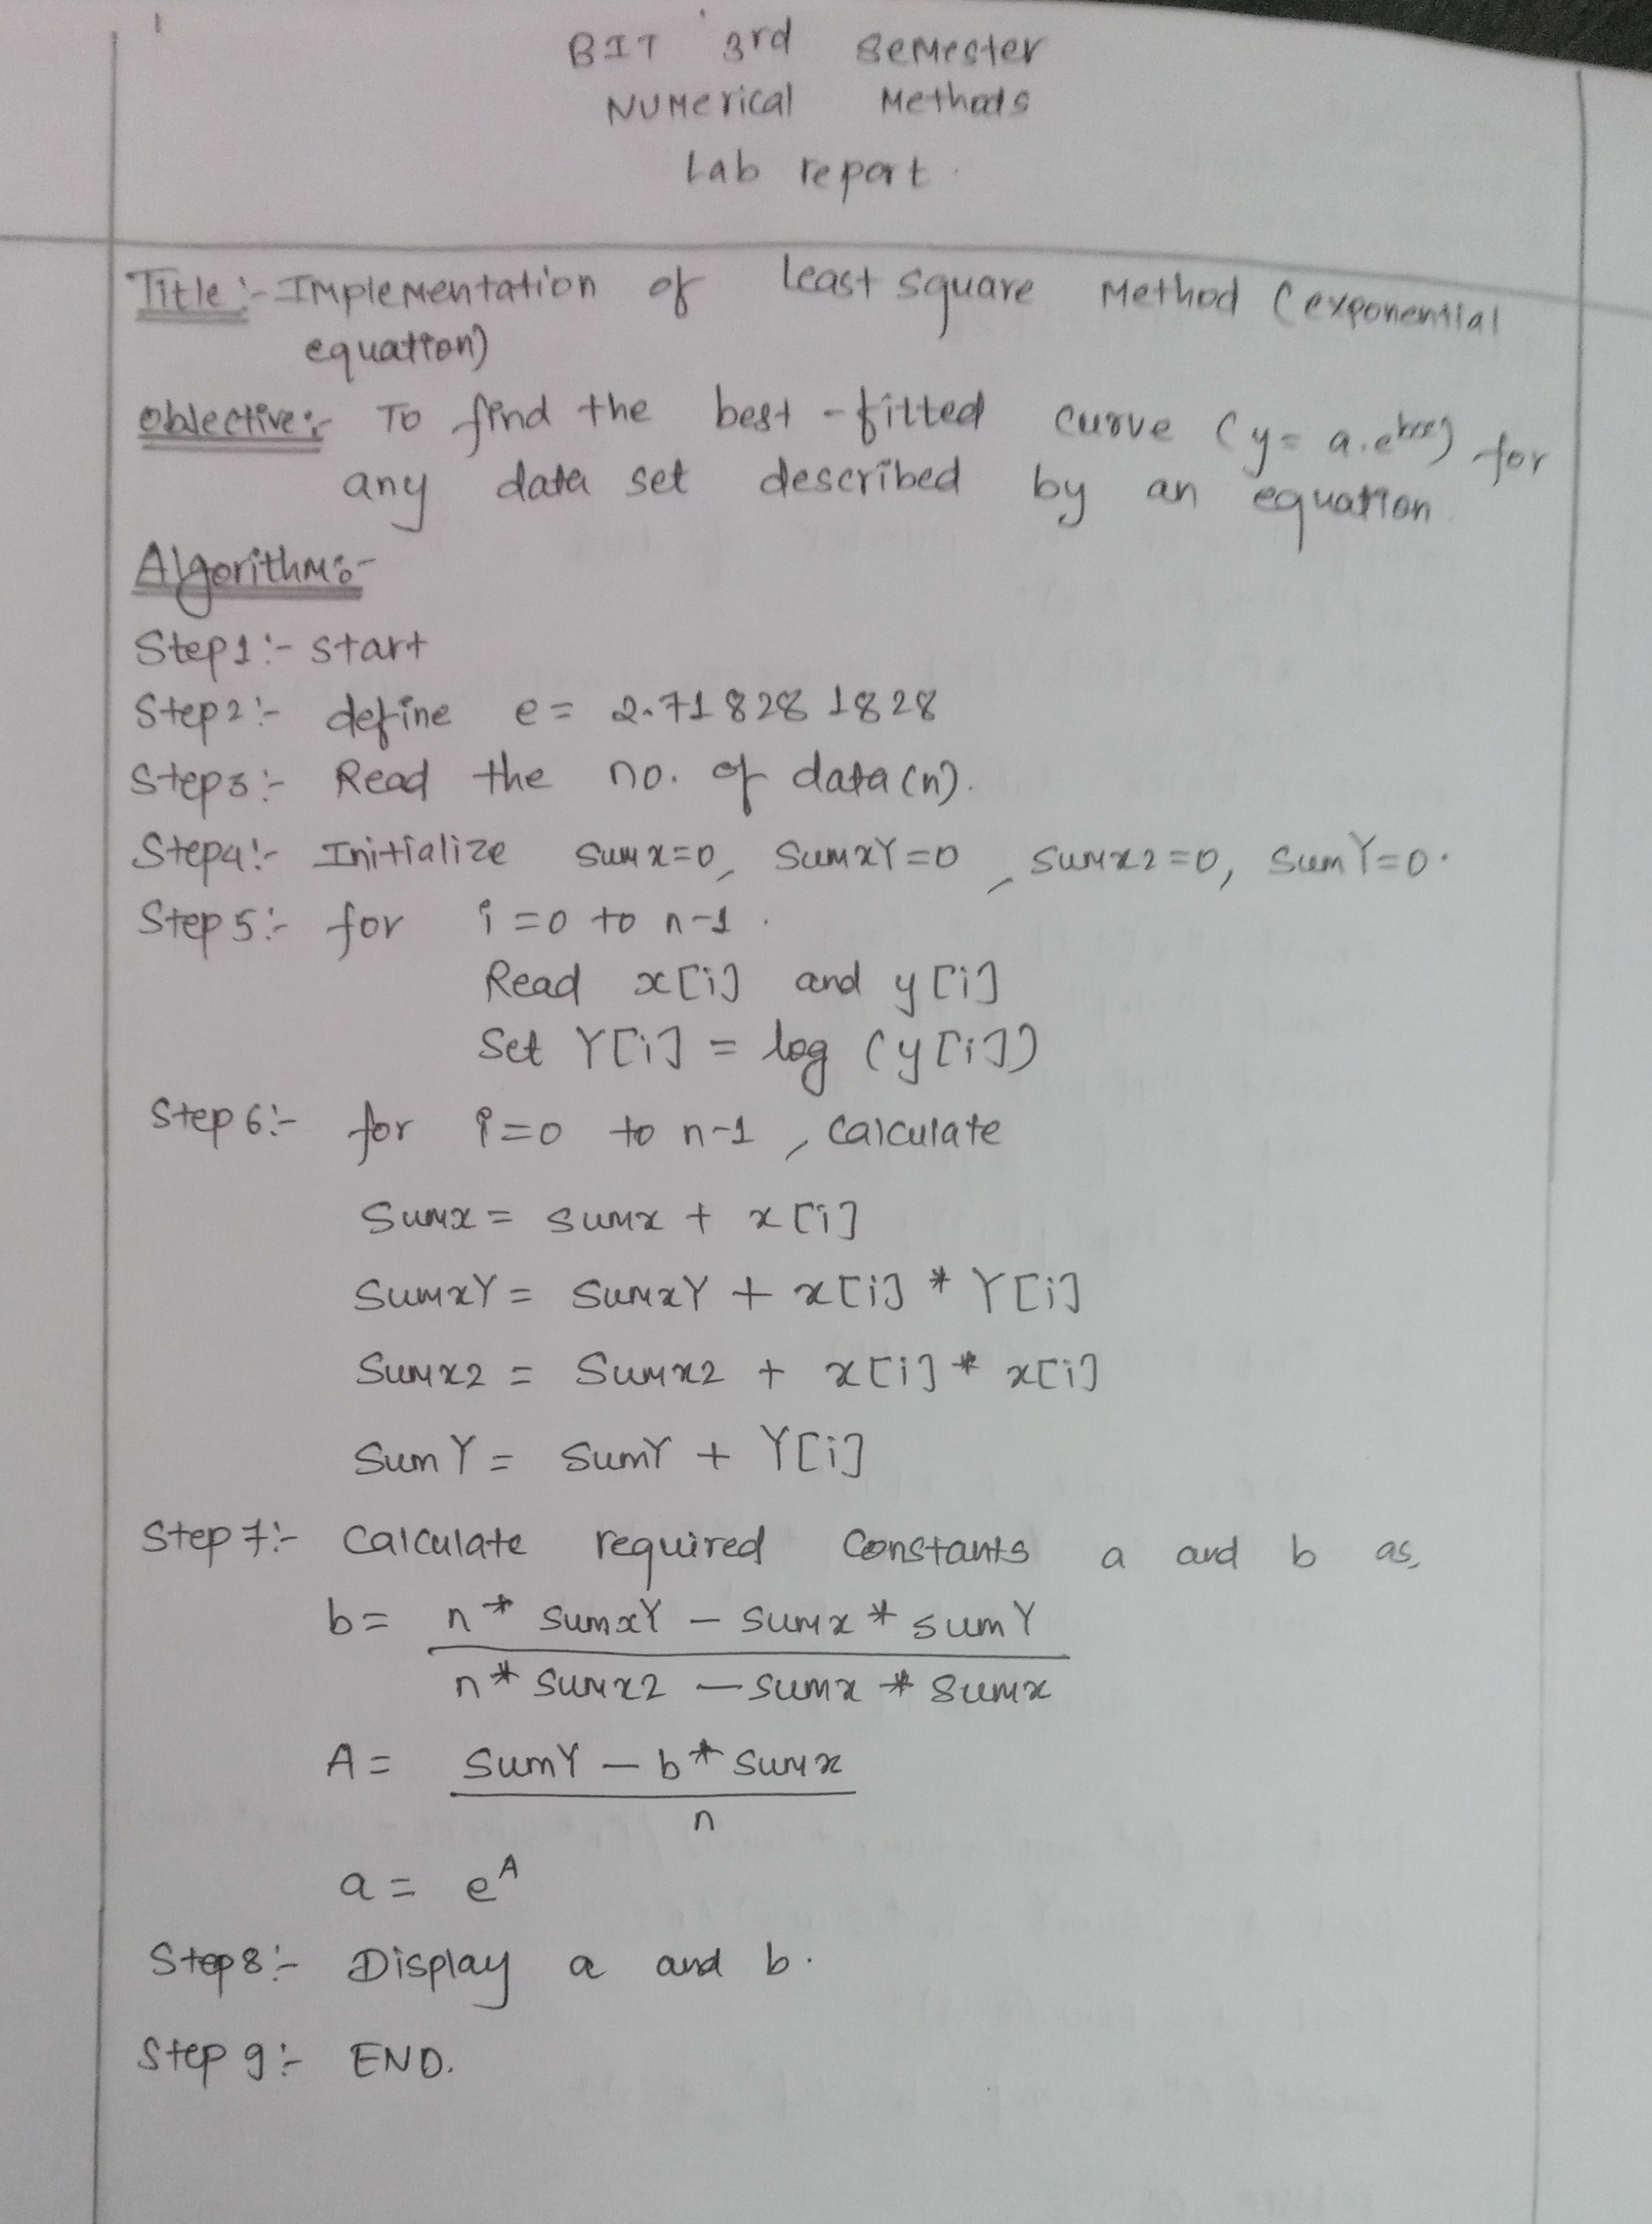 BIT 3rd Semester
Numerical Methods
Lab report.
Title:- Implementation of least square Method (exponential
equation)
Objective:- To find the best-fitted curve (y= a.e^bx) for
any data set described by an equation.
Algorithm:-
Step1:- start
Step2:- define e= 2.718281828
Step3:- Read the no. of data(n).
Step4:- Initialize sumx=0, sumxY=0, sumx2=0, sumY=0.
Step5:- for i=0 to n-1.
Read x[i] and y[i]
Set Y[i] = log (y[i])
Step6:- for i=0 to n-1, calculate
Sumx= sumx + x[i]
SumxY= SumxY + x[i] * Y[i]
Sumx2 = Sumx2 + x[i] * x[i]
SumY= sumY + Y[i]
Step7:- Calculate required Constants a and b as,
b= n* sumxY - sumx* sumY
n* sumx2 - sumx * sumx
A= SumY - b* sumx
n
a= e^A
Step8:- Display a and b.
Step9:- END.